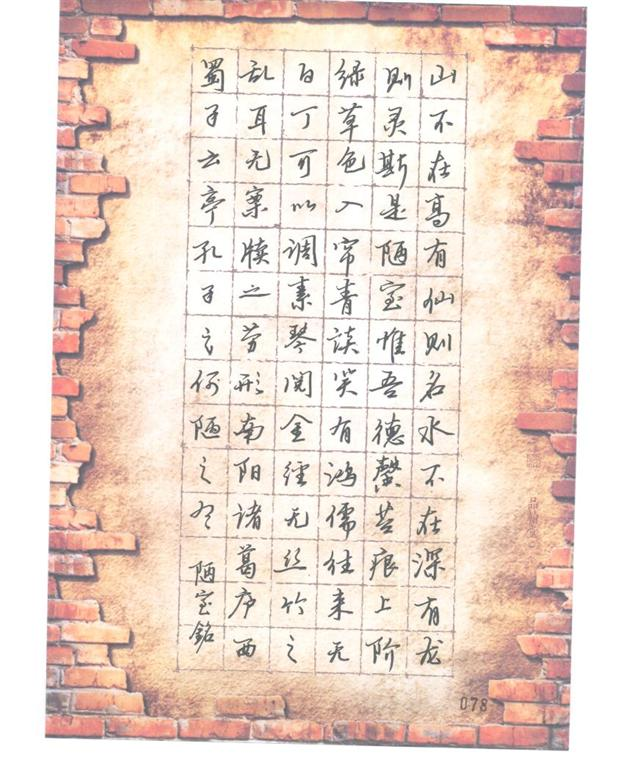 山不在高有仙则名水不在深有龙
则灵斯是陋室惟吾德馨苔痕上阶
绿草色入帘青谈笑有鸿儒往来无
白丁可以调素琴阅金经无丝竹之
乱耳无案牍之劳形南阳诸葛庐西
蜀子云亭孔子云何陋之有 陋室銘
078